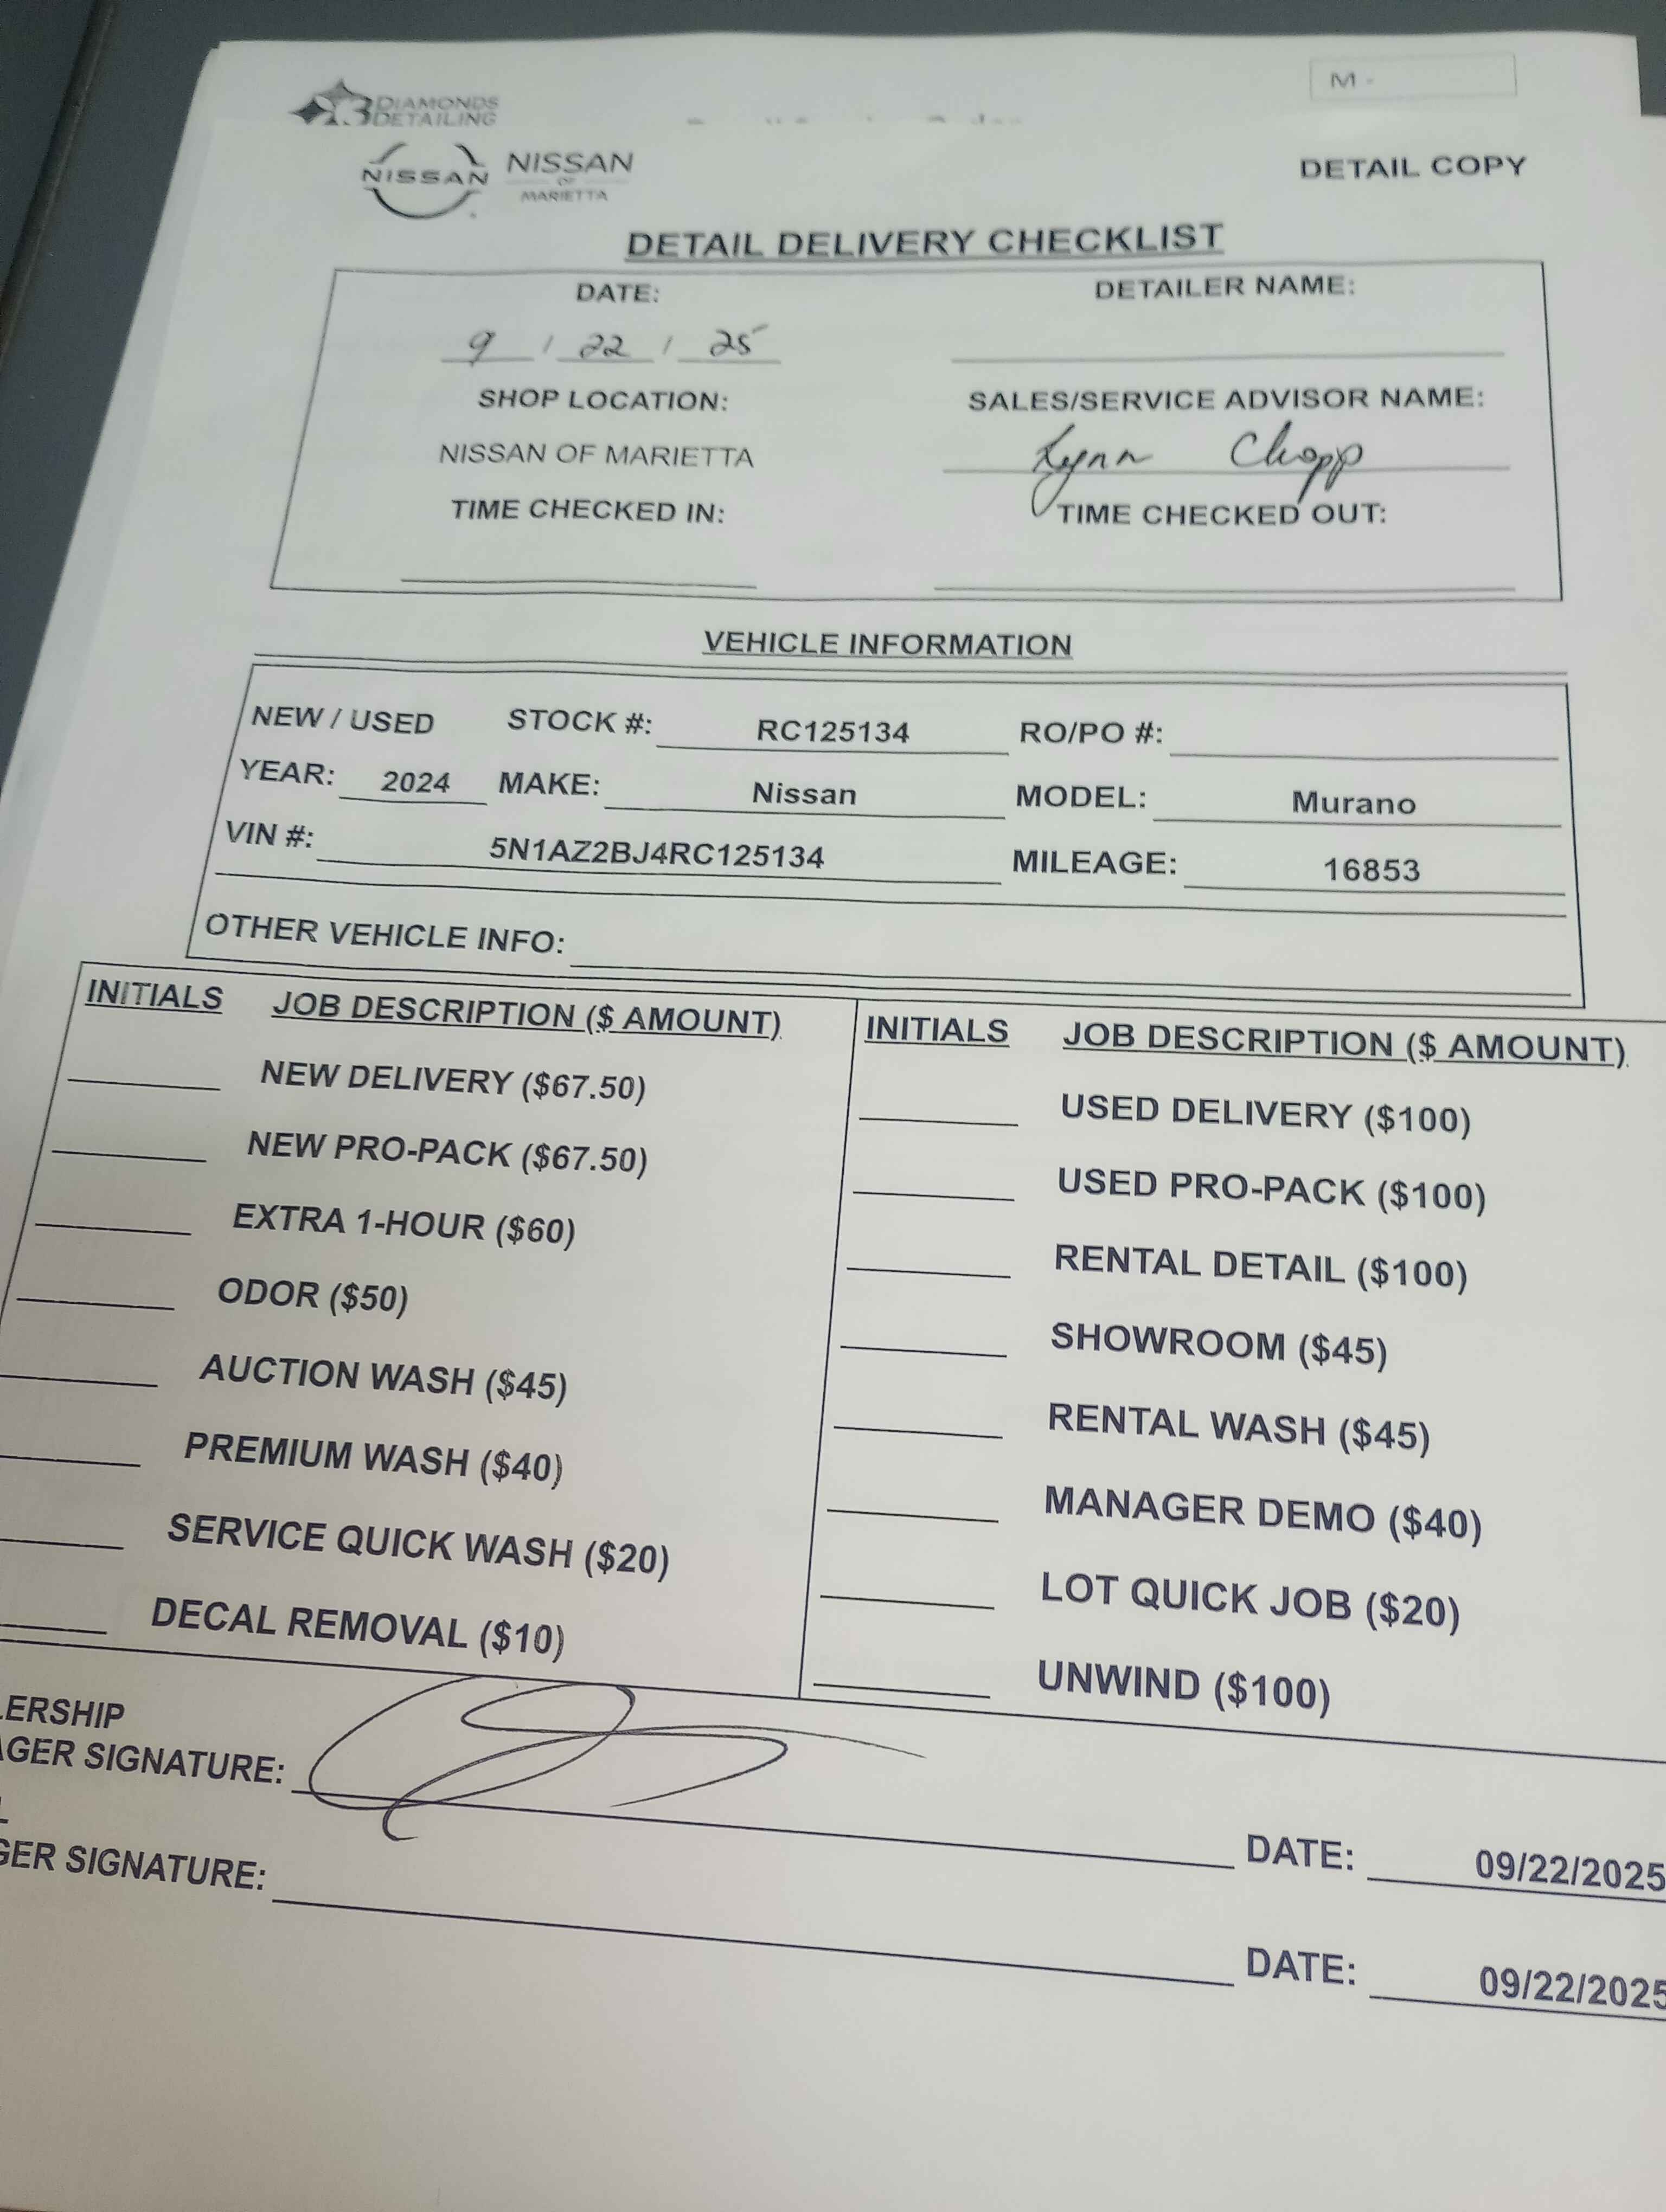 3 DIAMONDS
DETAILING
M -
NISSAN
NISSAN
OF
MARIETTA
DETAIL COPY
DETAIL DELIVERY CHECKLIST
DATE: DETAILER NAME:
9 / 22 / 25
SHOP LOCATION: SALES/SERVICE ADVISOR NAME:
NISSAN OF MARIETTA Lynn Chopp
TIME CHECKED IN: TIME CHECKED OUT:
VEHICLE INFORMATION
NEW / USED STOCK #: RC125134 RO/PO #:
YEAR: 2024 MAKE: Nissan MODEL: Murano
VIN #: 5N1AZ2BJ4RC125134 MILEAGE: 16853
OTHER VEHICLE INFO:
INITIALS JOB DESCRIPTION ($ AMOUNT)
NEW DELIVERY ($67.50)
NEW PRO-PACK ($67.50)
EXTRA 1-HOUR ($60)
ODOR ($50)
AUCTION WASH ($45)
PREMIUM WASH ($40)
SERVICE QUICK WASH ($20)
DECAL REMOVAL ($10)
INITIALS JOB DESCRIPTION ($ AMOUNT)
USED DELIVERY ($100)
USED PRO-PACK ($100)
RENTAL DETAIL ($100)
SHOWROOM ($45)
RENTAL WASH ($45)
MANAGER DEMO ($40)
LOT QUICK JOB ($20)
UNWIND ($100)
LERSHIP
AGER SIGNATURE: DATE: 09/22/2025
L
GER SIGNATURE: DATE: 09/22/2025